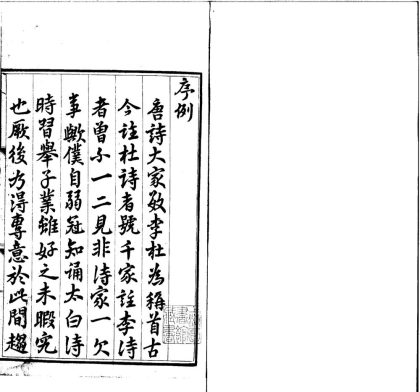 序例
唐詩大家數李杜為稱首古
今註杜詩者號千家註李詩
者曽不一二見非詩家一欠
事歟僕自弱冠知誦太白詩
時習舉子業雖好之未暇究
也厥後乃得專意於此間趨